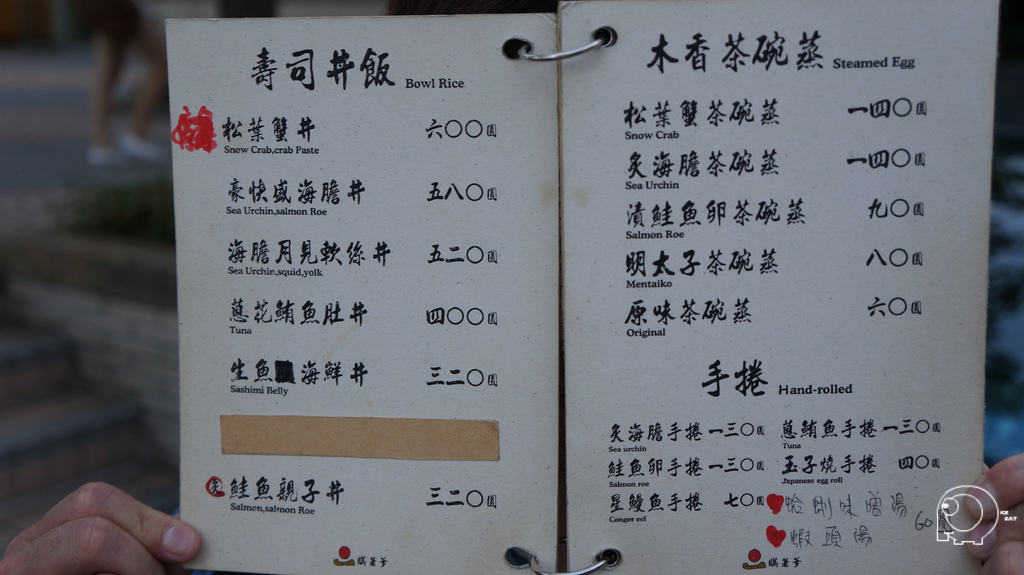 壽司丼飯 Bowl Rice
松葉蟹丼 六〇〇圓
Snow Crab,crab Paste
豪快盛海膽丼 五八〇圓
Sea Urchin,salmon Roe
海膽月見軟絲丼 五二〇圓
Sea Urchin,squid,yolk
蔥花鮪魚肚丼 四〇〇圓
Tuna
生魚 海鮮丼 三二〇圓
Sashimi Belly
炙 鮭魚親子丼 三二〇圓
Salmon,salmon Roe
木香茶碗蒸 Steamed Egg
松葉蟹茶碗蒸 一四〇圓
Snow Crab
炙海膽茶碗蒸 一四〇圓
Sea Urchin
漬鮭魚卵茶碗蒸 九〇圓
Salmon Roe
明太子茶碗蒸 八〇圓
Mentaiko
原味茶碗蒸 六〇圓
Original
手捲 Hand-rolled
炙海膽手捲 一三〇圓 蔥鮪魚手捲 一三〇圓
Sea urchin Tuna
鮭魚卵手捲 一三〇圓 玉子燒手捲 四〇圓
Salmon roe Japanese egg roll
星鰻魚手捲 七〇圓
Conger eel
蛤蜊味噌湯 60
蝦頭湯